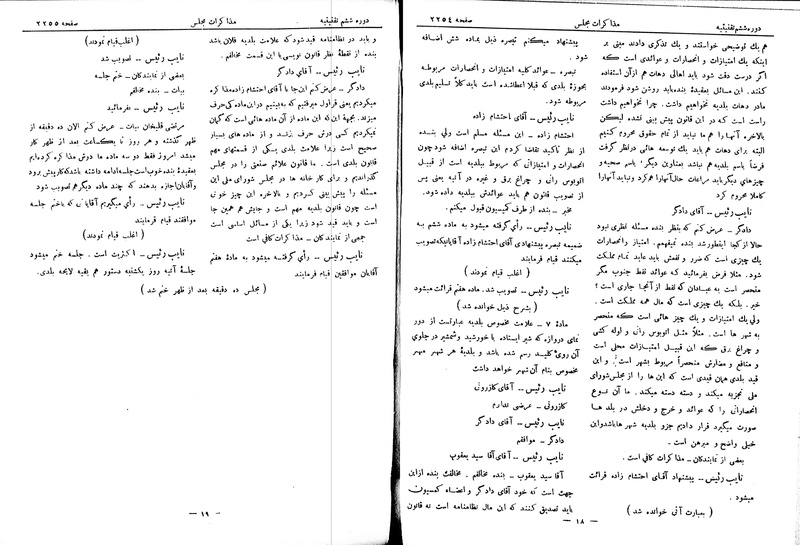 صفحه ٢٢٥٤
مذاکرات مجلس
دوره ششم تقنینیه
هم یك توضیحی خواستند و یك تذکری دادند مبنی بر
اینکه یك امتیازات و انحصارات و عوائدی است که
اگر درست دقت شود باید اهالی دهات هم از آن استفاده
کنند. این مسائل بعقیدهٔ بنده باید روشن شود فرمودند
مادر دهات بلدیه نخواهیم داشت. چرا نخواهیم داشت
راست است که در این قانون پیش بینی نشده لیکن
بالاخره آنها را هم ما نباید از تمام حقوق محروم کنیم
البته برای دهات هم باید یك توسعه هائی در نظر گرفت
فرضاً باسم بلدیه هم نباشد بعناوین دیگر؛ باسم صحیه و
چیزهای دیگر باید مراعات حال آنها را هم کرد و نباید آنها را
کاملا محروم کرد
نایب رئیس ــ آقای دادگر
دادگر ــ عرض کنم که بنظر بنده مسئله نظری نبود
حالا از کجا اینطور شد بنده نمیفهمم. امتیاز و انحصارات
یك چیزی است که ضرر و نفعش باید عاید تمام مملکت
شود. مثلا فرض بفرمائید که عوائد نفط جنوب مگر
منحصر است به عبادان که نفط از آنجا جاری است؟
خیر. بلکه یك چیزی است که مال همه مملکت است.
ولی یك امتیازات و یك چیز هائی است که منحصر
به شهر ها است. مثلاً مثل اتوبوس رانی و لوله کشی
و چراغ برق که این قبیل امتیازات محلی است
و منافع و مضارش منحصراً مربوط بشهر است و این
قید بلدی همان قیدی است که این ها را از مجلس شورای
ملی تجزیه میکند و دسته دسته میکند. ما آن نوع
انحصاراتی را که عوائد و خرج و دخلش در بلد ها
صورت میگیرد قرار دادیم جزو بلدیه شهر ها باشد و این
خیلی واضح و مبرهن است.
بعضی از نمایندگان ــ مذاکرات کافی است.
نایب رئیس ــ پیشنهاد آقای احتشام زاده قرائت
میشود.
( بعبارت آتی خوانده شد )
پیشنهاد میکنم تبصره ذیل بماده شش اضافه
شود
تبصره ــ عوائد کلیه امتیازات و انحصارات مربوطه
بحوزهٔ بلدی که قبلا اعطا شده است باید کلاً تسلیم بلدی
مربوطه شود.
نایب رئیس ــ آقای احتشام زاده
احتشام زاده ــ این مسئله مسلم است ولی بنده
از نظر تأکید تقاضا کردم این تبصره اضافه شود چون
انحصارات و امتیازاتی که مربوط ببلدیه است از قبیل
اتوبوس رانی و چراغ برق و غیره در آتیه یعنی پس
از تصویب قانون هم باید عوائدش ببلدیه داده شود.
مخبر ــ بنده از طرف کمیسیون قبول میکنم.
نایب رئیس ــ رأی گرفته میشود به ماده ششم به
ضمیمه تبصره پیشنهادی آقای احتشام زاده آقایانیکه تصویب
میکنند قیام فرمایند
( اغلب قیام نمودند )
نایب رئیس ــ تصویب شد. ماده هفتم قرائت میشود
( بشرح ذیل خوانده شد )
مادهٔ ٧ ــ علامت مخصوص بلدیه عبارتست از دور
نمای دروازه که شیر ایستاده با خورشید و شمشیر در جلوی
آن روی کلید رسم شده باشد و بلدیهٔ هر شهر مهر
مخصوص بنام آن شهر خواهد داشت
نایب رئیس ــ آقای کازرونی
کازرونی ــ عرضی ندارم
نایب رئیس ــ آقای دادگر
دادگر ــ موافقم
نایب رئیس ــ آقای آقا سید یعقوب
آقا سید یعقوب ــ بنده مخالفم. مخالفت بنده از این
جهت است که خود آقای دادگر و اعضاء کمسیون
باید تصدیق کنند که این مال نظامنامه است نه قانون
ــ ١٨ ــ
دوره ششم تقنینیه
مذاکرات مجلس
صفحه ٢٢٥٥
و باید در نظامنامه قید شود که علامت بلدیه فلان باشد
بنده از نقطهٔ نظر قانون نویسی با این قسمت مخالفم.
نایب رئیس ــ آقای دادگر
دادگر ــ عرض کنم این جا با آقای احتشام زاده مذاکره
میکردیم یعنی قراول میرفتیم که به بینیم در این ماده کی حرف
میزند. بجهة این که این ماده از آن ماده هائی است که گمان
نمیکردیم کسی درش حرف بزند و از ماده های بسیار
صحیح است زیرا علامت بلدی یکی از قسمتهای مهم
قانون بلدی است. ما قانون علائم صنعتی را در مجلس
گذراندیم و برای کار خانه ها در مجلس شورای ملی این
مسئله را پیش بینی کردیم و بالاخره این چیز خوبی
است چون قانون بلدیه مهم است و جایش هم همین جا
است و باید قید شود زیرا یکی از مسائل اساسی است
جمعی از نمایندگان ــ مذاکرات کافی است
نایب رئیس ــ رأی گرفته میشود به مادهٔ هفتم
آقایان موافقین قیام فرمایند
(اغلب قیام نمودند)
نایب رئیس ــ تصویب شد
بعضی از نمایندگان ــ ختم جلسه
بیات ــ بنده مخالفم
نایب رئیس ــ بفرمائید
مرتضی قلیخان بیات ــ عرض کنم الان ده دقیقه از
ظهر گذشته و هر روز تا یکساعت بعد از ظهر کار
میشد امروز فقط دو سه ماده ما درش مذاکره کرده ایم
بعقیدهٔ بنده خوب است جلسه ادامه داشته باشد که کار پیش برود
و آقایان اجازه بدهند که چند ماده دیگر هم تصویب شود
نایب رئیس ــ رأی میگیریم آقایانی که با ختم جلسه
موافقند قیام فرمایند
( اغلب قیام نمودند )
نایب رئیس ــ اکثریت است. جلسه ختم میشود
جلسهٔ آتیه روز یکشنبه دستور هم بقیه لایحه بلدی.
( مجلس ده دقیقه بعد از ظهر ختم شد )
ــ ١٩ ــ